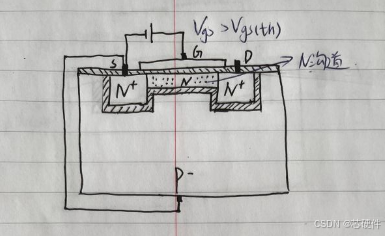 Vgs > Vgs(th)
S G D N沟道
N+ N N+
P-
CSDN @芯硬件